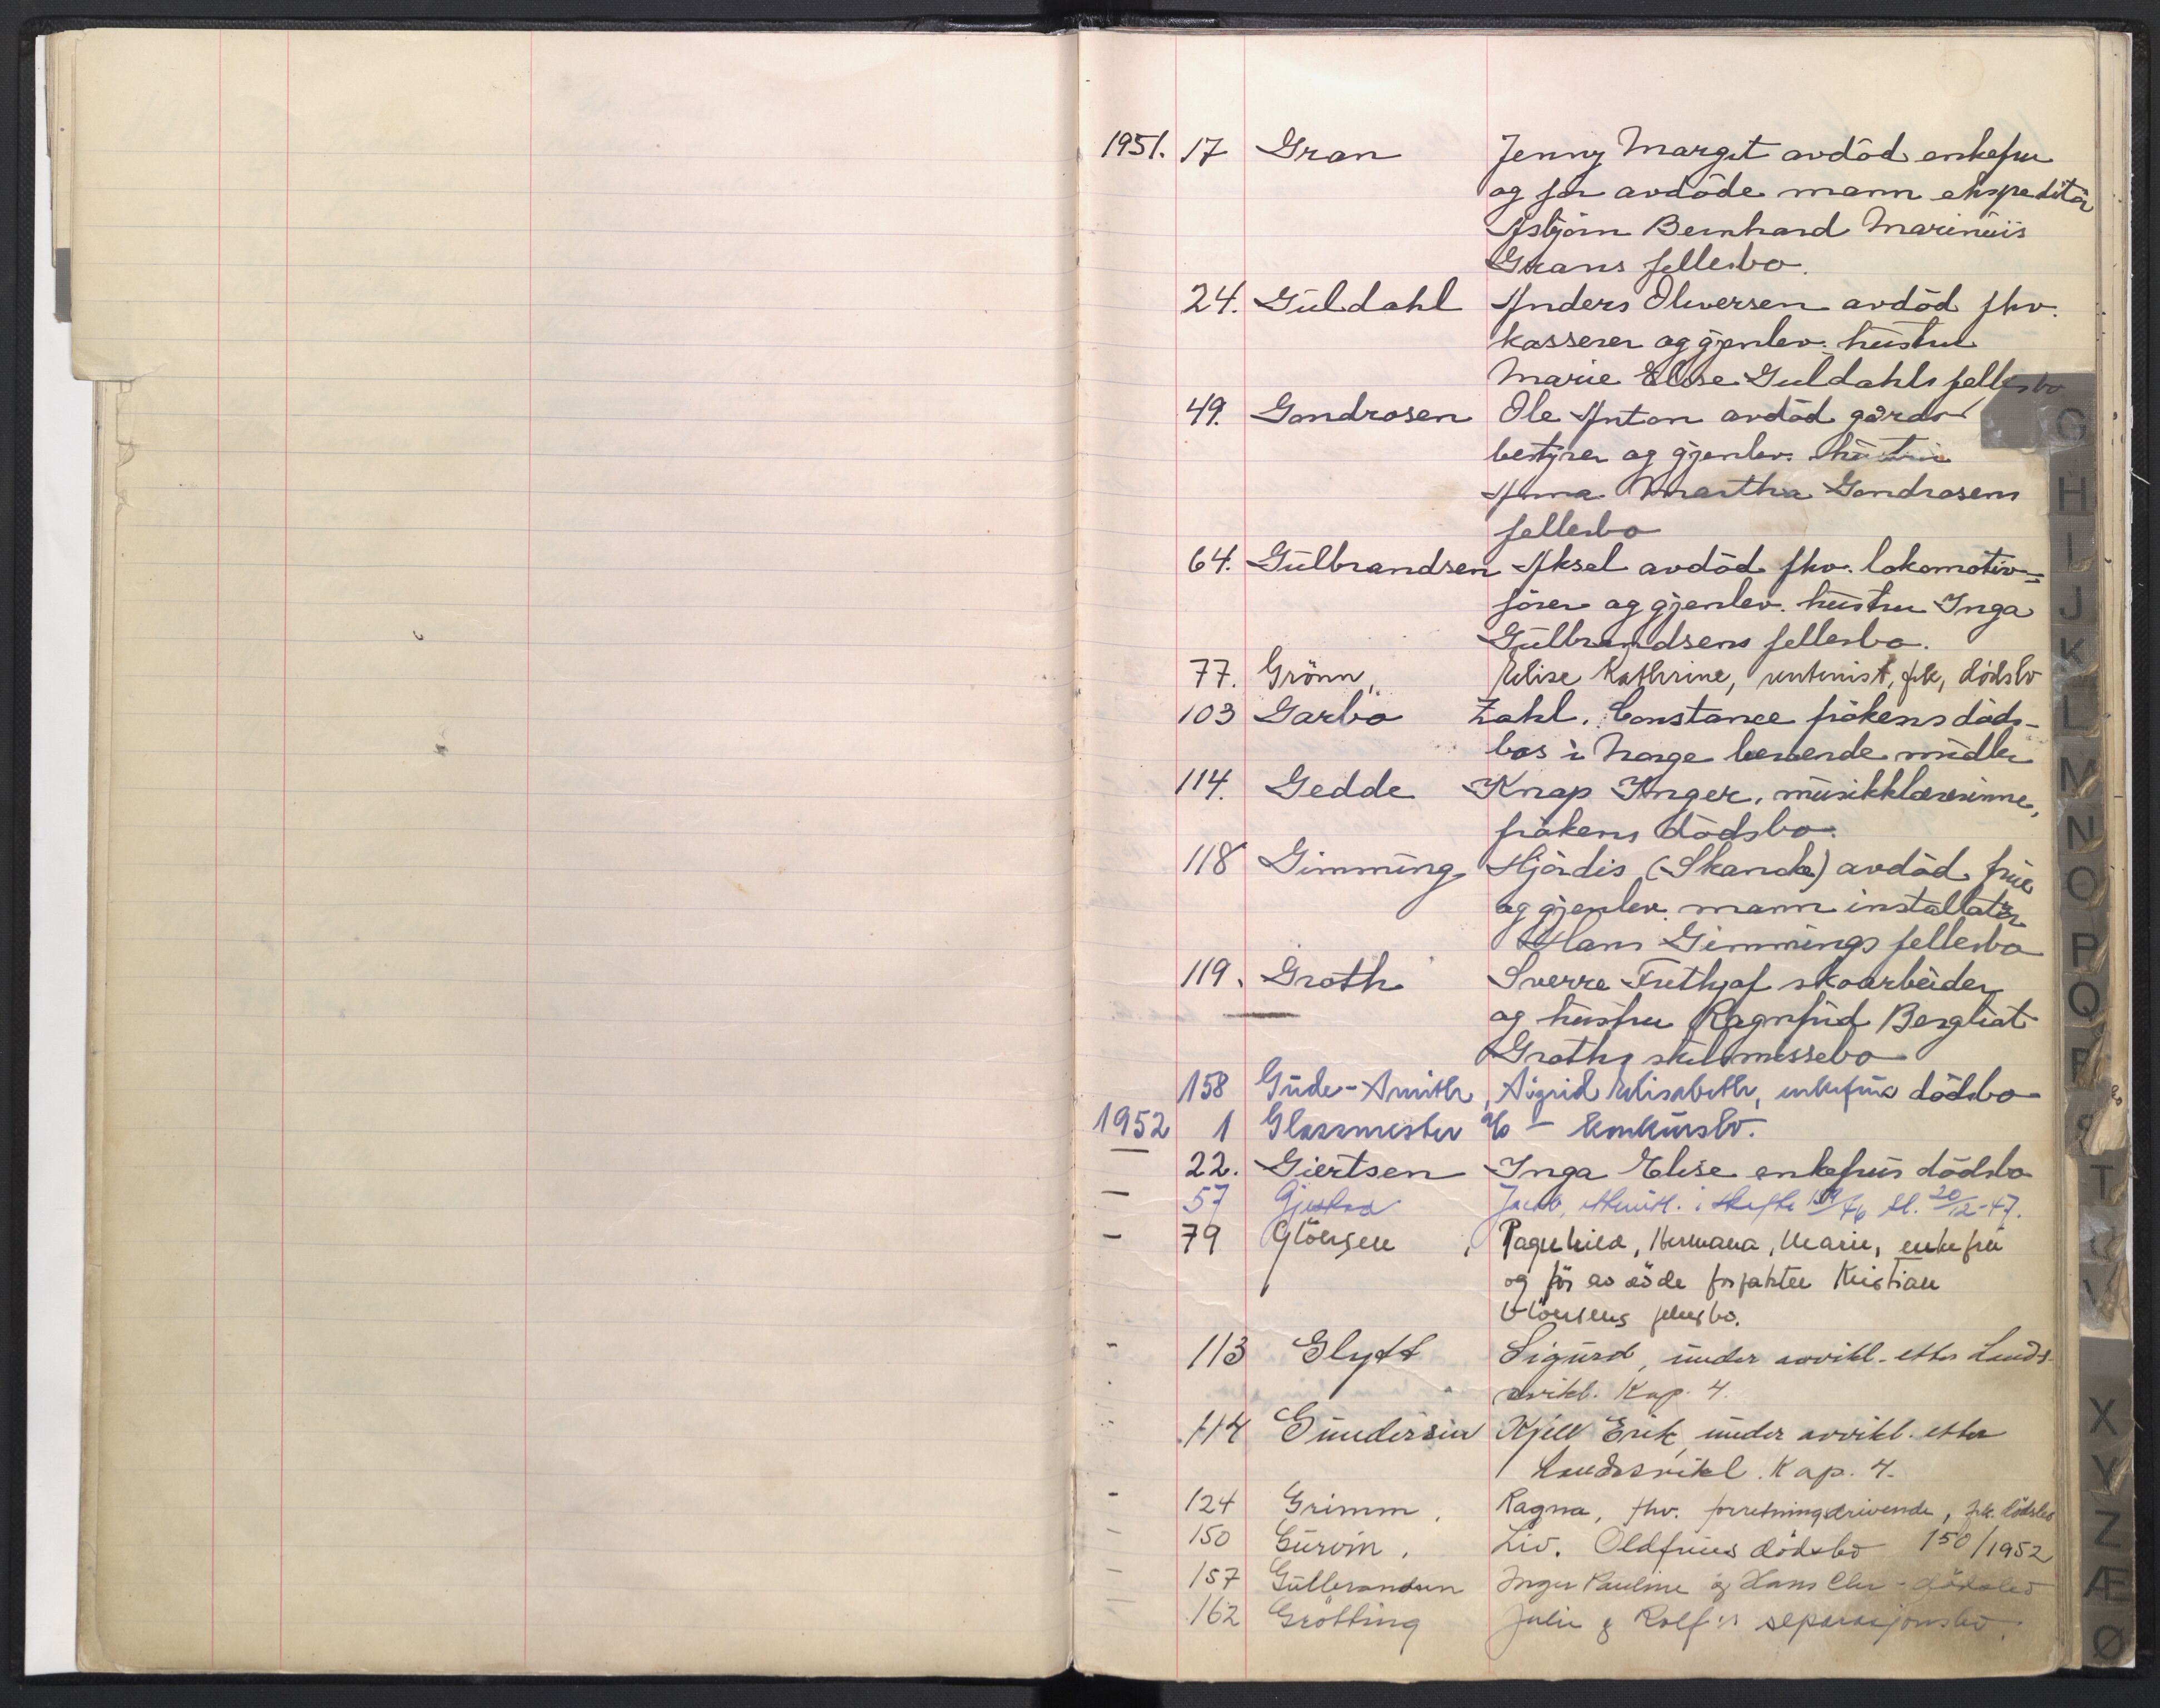 1951. 17 Gran Jenny Margit avdöd enkefru
og før avdöde mann ekspeditör
Asbjörn Bernhard Marinüis
Grans fellesbo.
24. Güldahl Anders Oliversen avdöd fhv.
kasserer og gjenlev. hüstru
Marie Elise Guldahls fellesbo
49. Gondrosen Ole Anton avdöd gårds-
bestyrer og gjenlev. hüstrü
Anna Martha Gondrosens
fellesbo
64. Gülbrandsen Aksel avdöd fhv. lokomotiv=
förer og gjenlev. hüstru Inga
Gülbrandsens fellesbo.
77. Grönn, Elise Kathrine, rentenist, frk, dödsbo
103 Garbo Zahl. Constance frökens döds-
bos i Norge beroende midler
114. Gedde Knap Inger, müsikklærerinne,
frökens dödsbo.
118 Gimming Hjördis (Skancke) avdöd früe
og gjenlev. mann installatör
Hans Gimmings fellesbo
119. Groth Sverre Frithjof skoarbeider
og hüstru Ragnfrid Bergliot
Groths skilsmissebo
158 Güde-Smith, Sigrid Elisabeth, enkefrus dödsbo
1952 1 Glassmester A/S - konkürsbo.
22. Giertsen Inga Elise enkefrüs dödsbo
57 Jacob, i skifte 20/12-47.
79 Glöersen, Ragnhild, Hermana, Marie, enkefrü
og för avdöde forfatter Kristian
Glöersens fellesbo.
113 Glytt Sigürd, ünder avvikl. etter Lands-
svikl. Kap. 4.
114 Gündersen Kjell Erik, ünder avvikl. etter
Landssvikl. Kap. 4.
124 Grimm, Ragna, fhv. forretningsdrivende, frk. dödsbo
150 Gürvin, Liv. Oldfrües dödsbo 150/1952
157 Güllbrandsen Inger Pauline og Hans Chr - dödsbo
162 Grötting Julie & Rolf's separasjonsbo.
G
H
I
J
K
L
M
N
O
P
Q
R
S
T
U
V
X
Y
Z
Æ
Ø